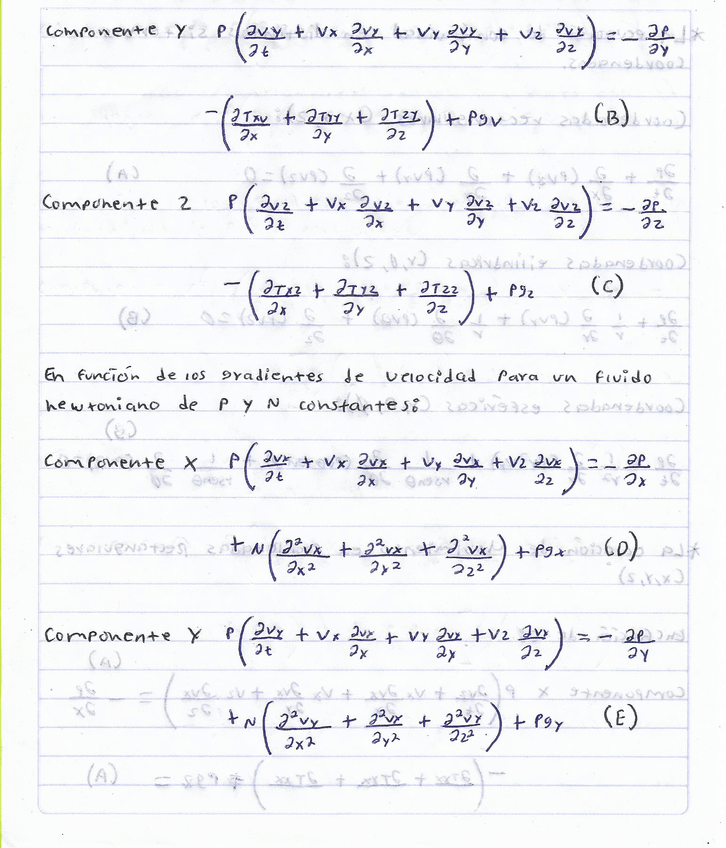 Componente Y P(∂vy/∂t + Vx ∂vy/∂x + Vy ∂vy/∂y + Vz ∂vx/∂z) = - ∂P/∂y
-(∂Txv/∂x + ∂Tyy/∂y + ∂Tzy/∂z) + Pgv (B)
Componente z P(∂vz/∂t + Vx ∂vz/∂x + Vy ∂vz/∂y + Vz ∂vz/∂z) = - ∂P/∂z
-(∂Txz/∂x + ∂Tyz/∂y + ∂Tzz/∂z) + Pgz (C)
En función de los gradientes de velocidad Para un fluido
newtoniano de P Y N constantes:
Componente X P(∂vx/∂t + Vx ∂vx/∂x + Vy ∂vx/∂y + Vz ∂vx/∂z) = - ∂P/∂x
+ N(∂²vx/∂x² + ∂²vx/∂y² + ∂²vx/∂z²) + Pgx (D)
Componente Y P(∂vy/∂t + Vx ∂vx/∂x + Vy ∂vx/∂y + Vz ∂vy/∂z) = - ∂P/∂y
+ N(∂²vy/∂x² + ∂²vx/∂y² + ∂²vy/∂z²) + Pgy (E)